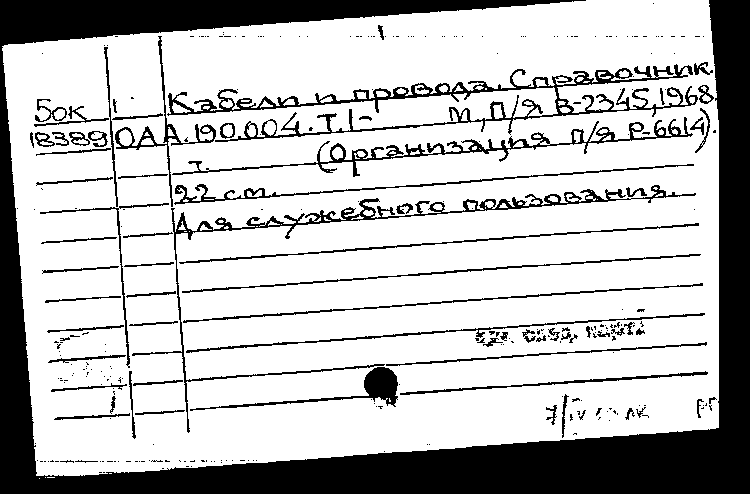 Бок Кабели и провода. Справочник.
18389 ОАА.190.004. Т.1- М., п/я В-2345, 1968.
т. (Организация п/я Р-6614).
22 см.
Для служебного пользования.
7/IV